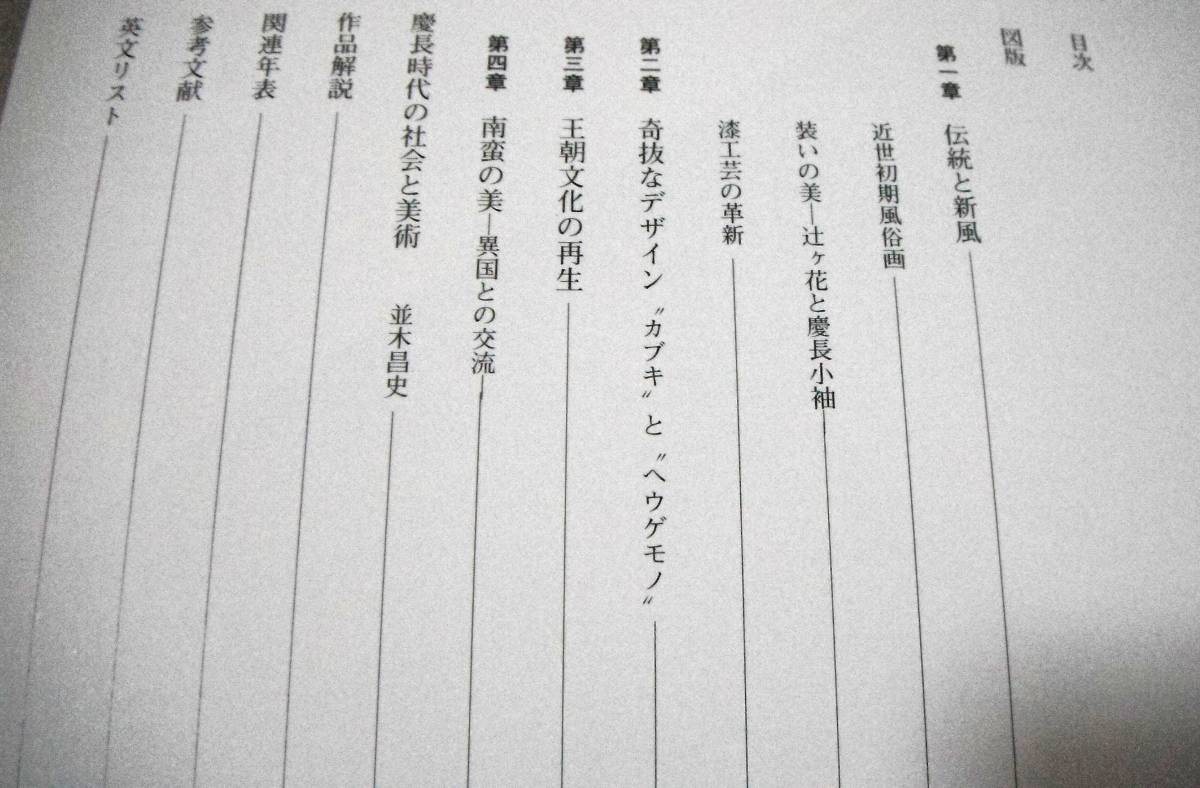 目次
図版
第一章 伝統と新風
近世初期風俗画
装いの美―辻ヶ花と慶長小袖
漆工芸の革新
第二章 奇抜なデザイン〝カブキ〟と〝ヘウゲモノ〟
第三章 王朝文化の再生
第四章 南蛮の美―異国との交流
慶長時代の社会と美術 並木昌史
作品解説
関連年表
参考文献
英文リスト